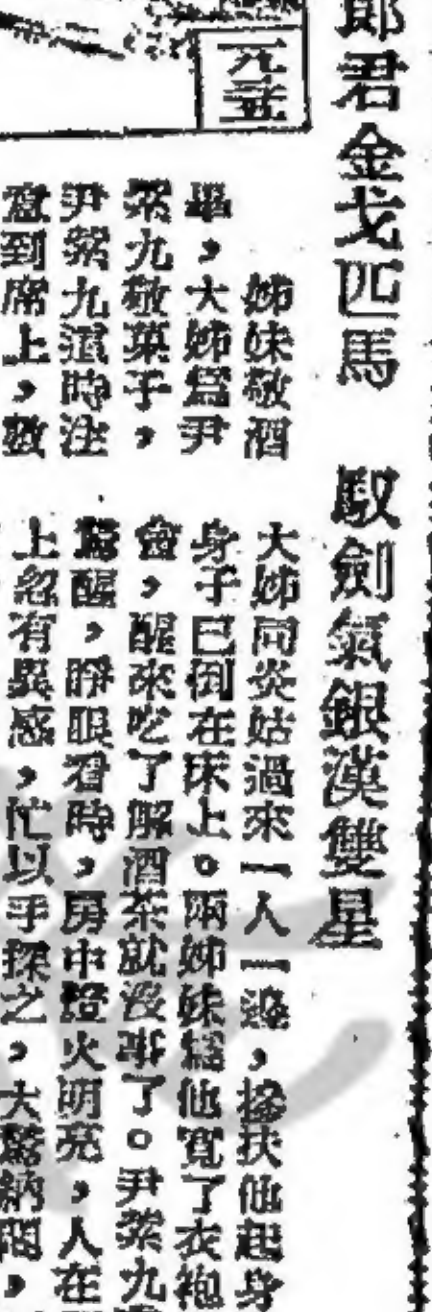 郎君金戈匹馬　馭劍氣銀漢雙星
元熹
姊妹敬酒
畢，大姊爲尹
紫九敬菓子，
尹紫九這時注
意到席上，數
大姊同炎姑過來一人一邊，攙扶他起身
身子已倒在床上。兩姊妹爲他寬了衣袍
會，醒來吃了解酒茶就沒事了。尹紫九
醒，睜眼看時，房中燈火明亮，人在
上忽有異感，忙以手探之，大驚納悶，